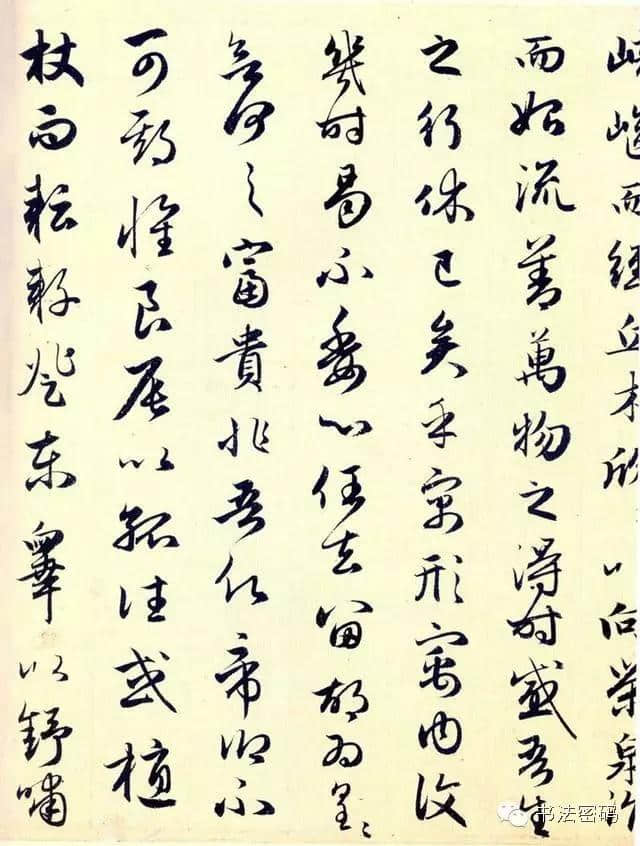 崎嶇而經丘木欣〻以向榮泉涓
而始流善萬物之得時感吾生
之行休已矣乎寓形宇內復
幾時曷不委心任去留胡為遑〻
何之富貴非吾願帝鄉不
可期懷良辰以孤往或植
杖而耘耔登東皋以舒嘯
书法密码